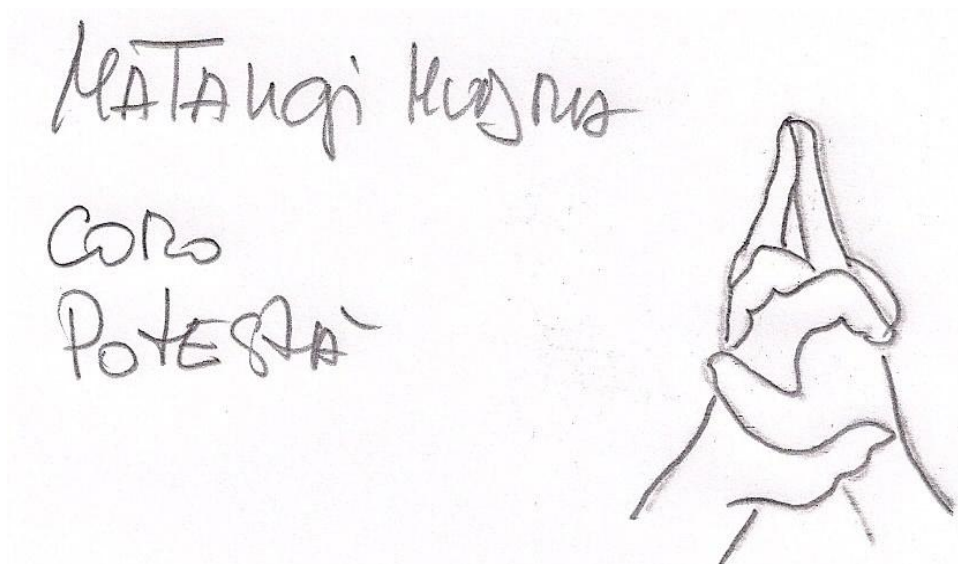 MATANGi MUDRA
CORO
POTESTÀ